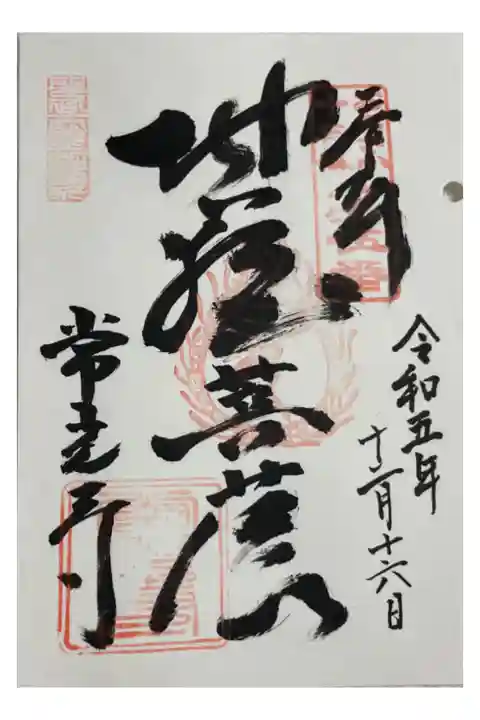 令和五年
十二月十六日
奉拝
地蔵菩薩
常光寺